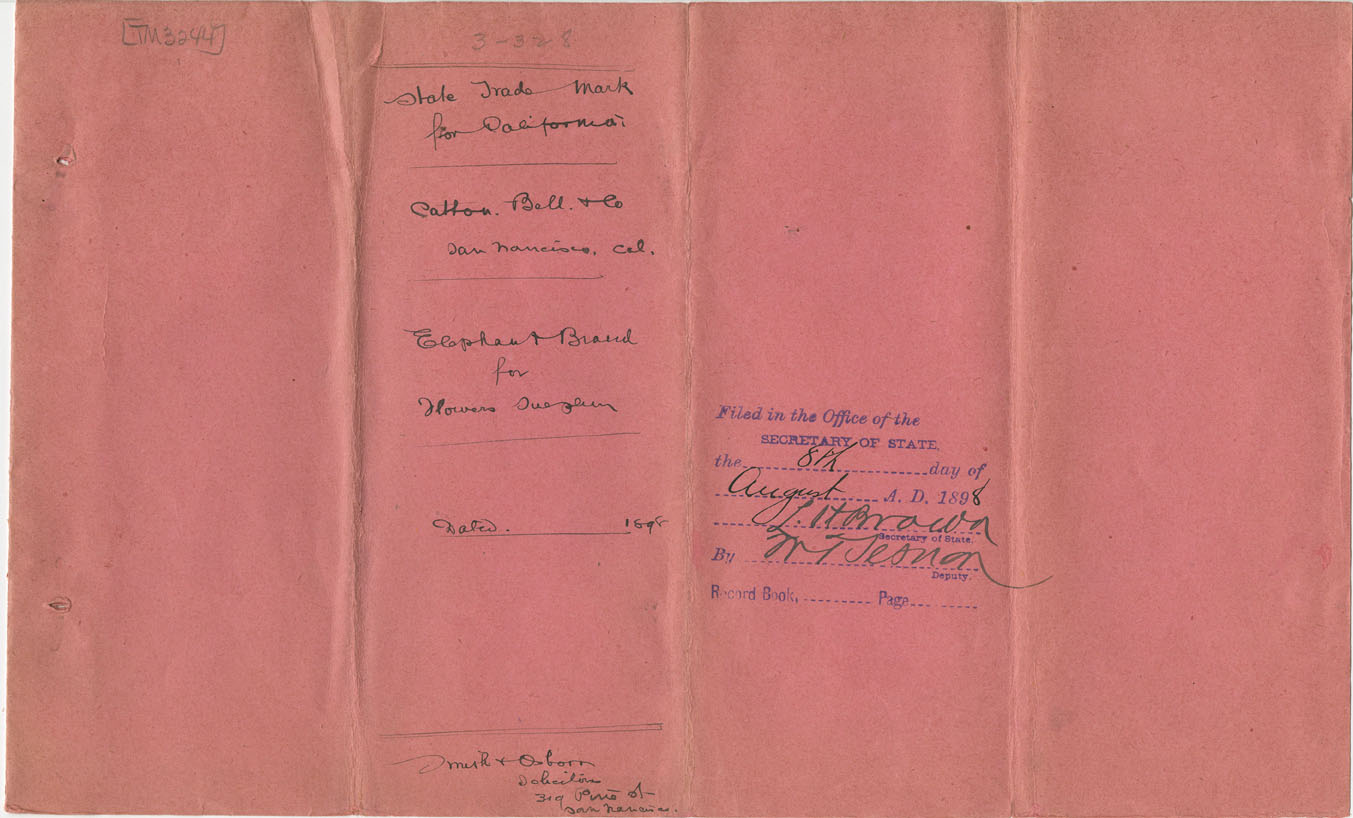 [TM3244]
3-328
State Trade Mark
for California.
Catton. Bell. & Co
San Francisco, Cal.
Elephant Brand
for
Flowers Sulphur
Dated. 1898
Smith & Osborn
Solicitors
319 Pine St
San Francisco.
Filed in the Office of the
SECRETARY OF STATE,
the 8th day of
August A. D. 1898
L. H Brown
Secretary of State.
By
Deputy.
Record Book, Page